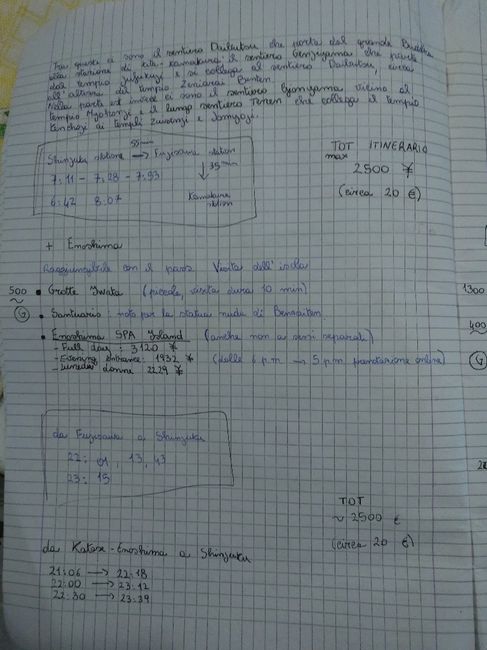 Tra questi ci sono il sentiero Daibutsu, che parte dal grande Buddha
alla stazione di kita-kamakura, il sentiero Genjiyama che parte
dal tempio Jufukuji e si collega al sentiero Daibutsu, circa
all'altezza del tempio Zeniarai Benten.
Nella parte est invece ci sono il sentiero Gionyama vicino al
tempio Myohonji e il lungo sentiero Tenen che collega il tempio
Kenchoji ai templi Zuisenji e Jomyoji.
55min
Shinjuku station → Fujisawa station
↓ 35min
7:11 - 7:28 - 7:53
6:42 8:07
Kamakura station
TOT ITINERARIO
max
2500 ¥
(circa 20 €)
+ Enoshima
Raggiungibile con il pass Visita dell'isola
500 • Grotte Iwata (piccole, visita dura 10 min)
1300
G • Santuario: noto per la statua nuda di Benzaiten.
400
• Enoshima SPA Island (anche non a sessi separati)
- Full day: 3120 ¥
G
- Evening entrance: 1932 ¥ (dalle 6 p.m → 5 p.m prenotazione online)
- lunedì donne 2229 ¥
da Fujisawa a Shinjuku
22: 01, 13, 43
23: 15
TOT
~ 2500 €
(circa 20 €)
da Katase-Enoshima a Shinjuku
21:06 → 22:18
22:00 → 23:12
22:30 → 23:39